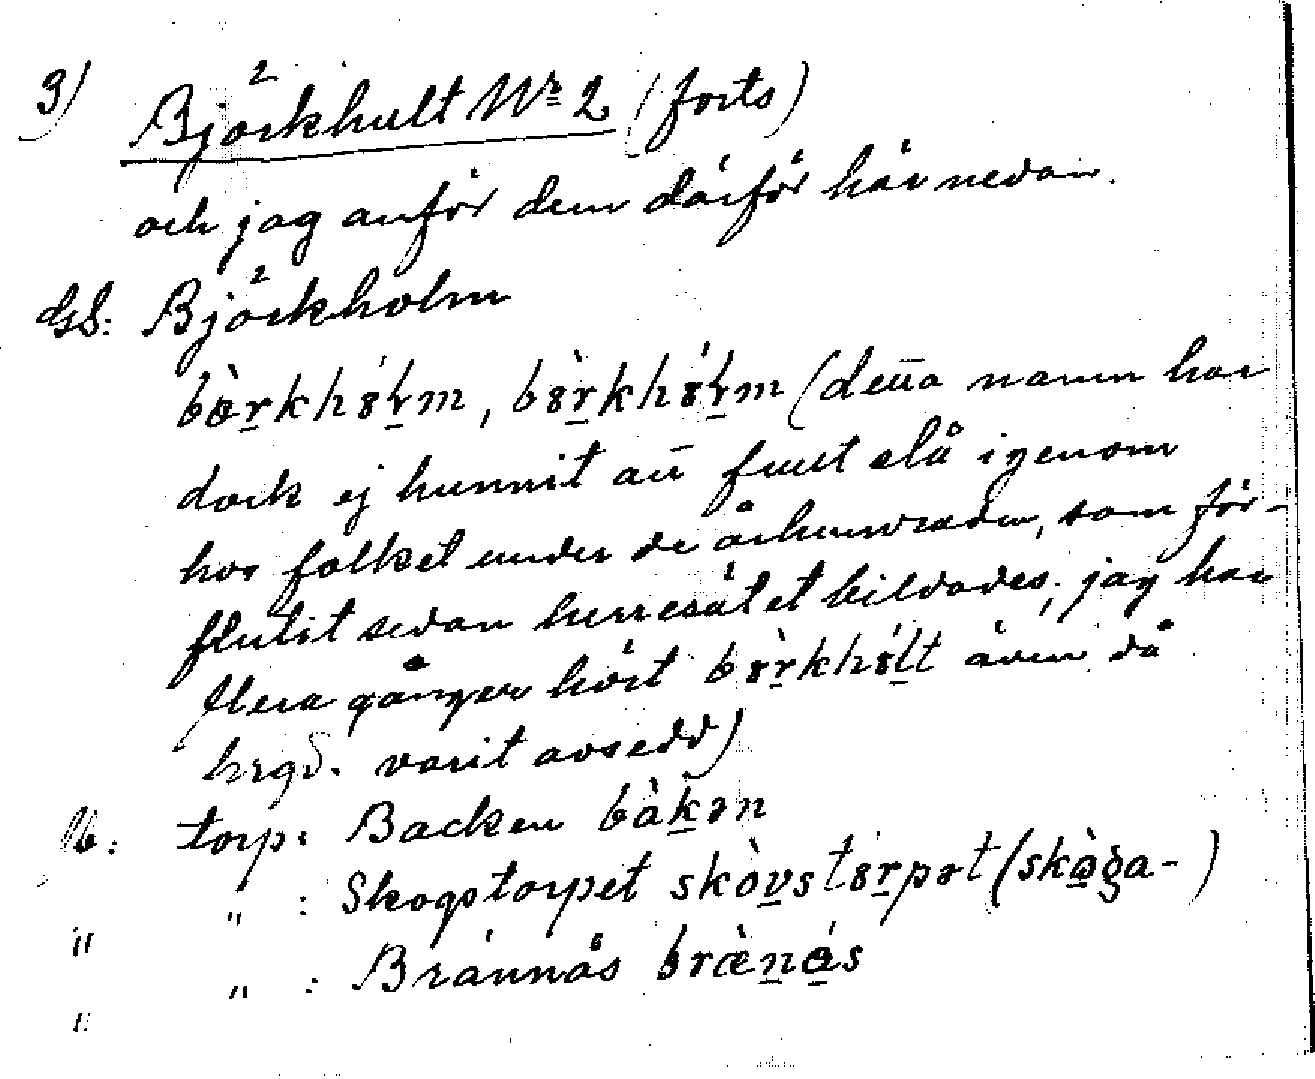 3) Björkhult Nr 2 (forts)
och jag anför dem därför här nedan.
Gd: Björkholm
bə̀rkhólm, bɤ̀rkhɤ́lm (detta namn har
dock ej hunnit att fullt slå igenom
hos folket under de århundraden, som för-
flutit sedan herresätet bildades; jag har
flera gånger hört bɤ̀rkhɤ́lt även då
hrgd. varit avsedd)
Ib: torp: Backen bàkən
" " : Skogstorpet skòvstɤrpət (skòga-)
" " : Brännås brænås
"